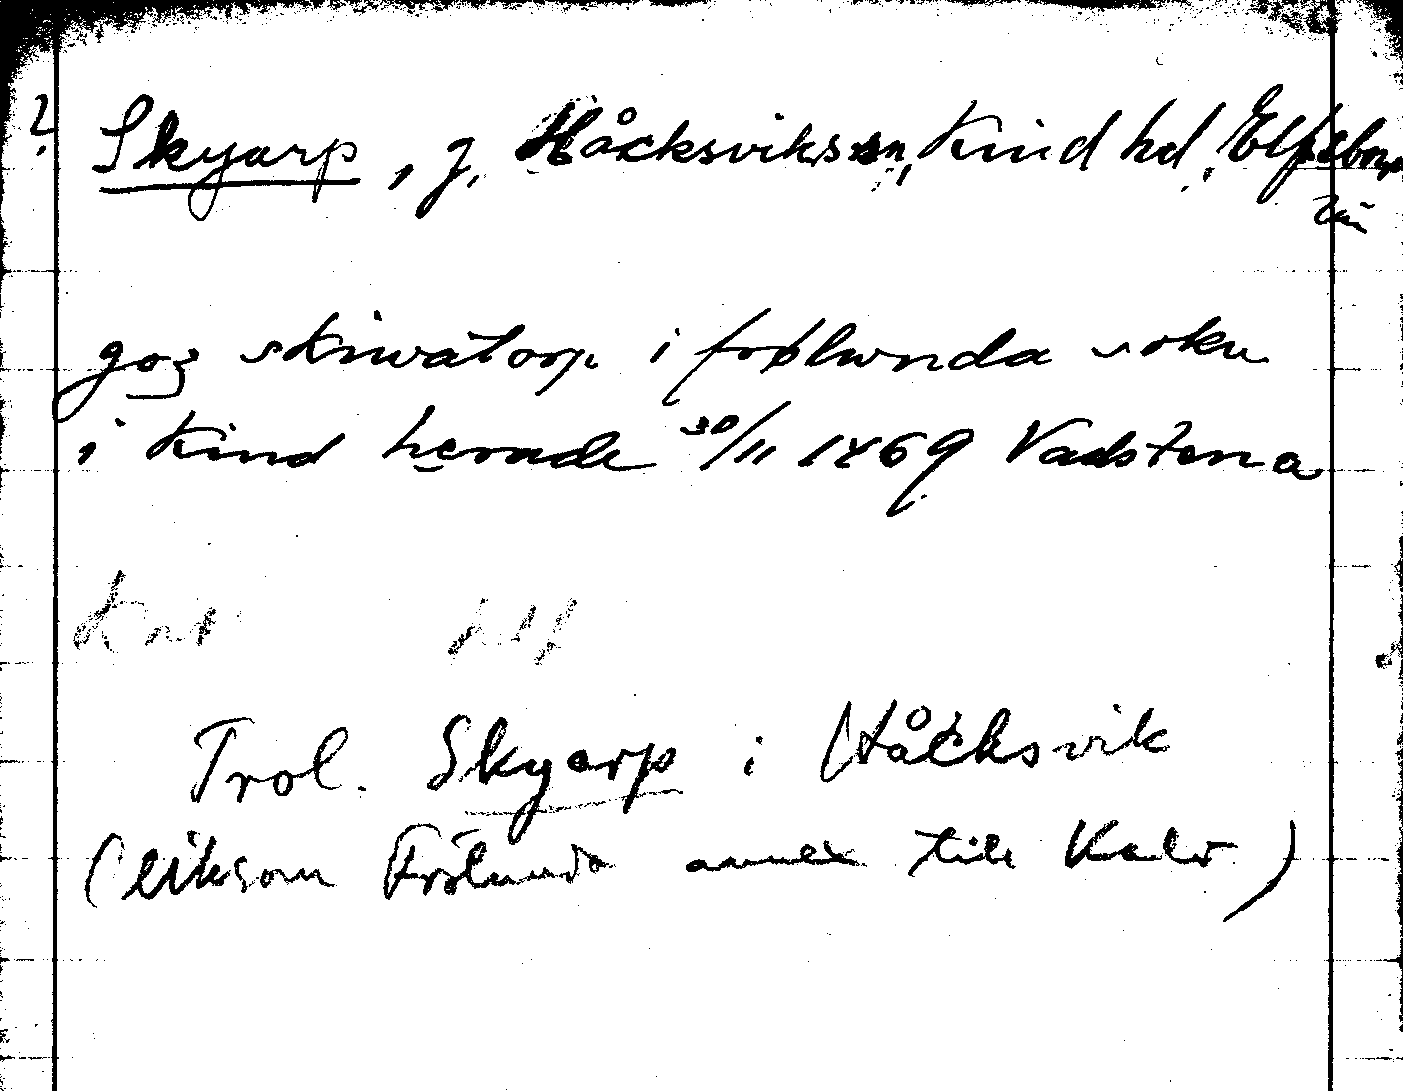 ? Skyarp, g. Håcksviks sn, Kind hd, Elfsborgs
län
goz skiwatorp i frølwnda sokn
i Kind herade 30/11 1469 Vadstena
Trol. Skyarp i Håcksvik
(liksom Frölunda annex till Kalv)